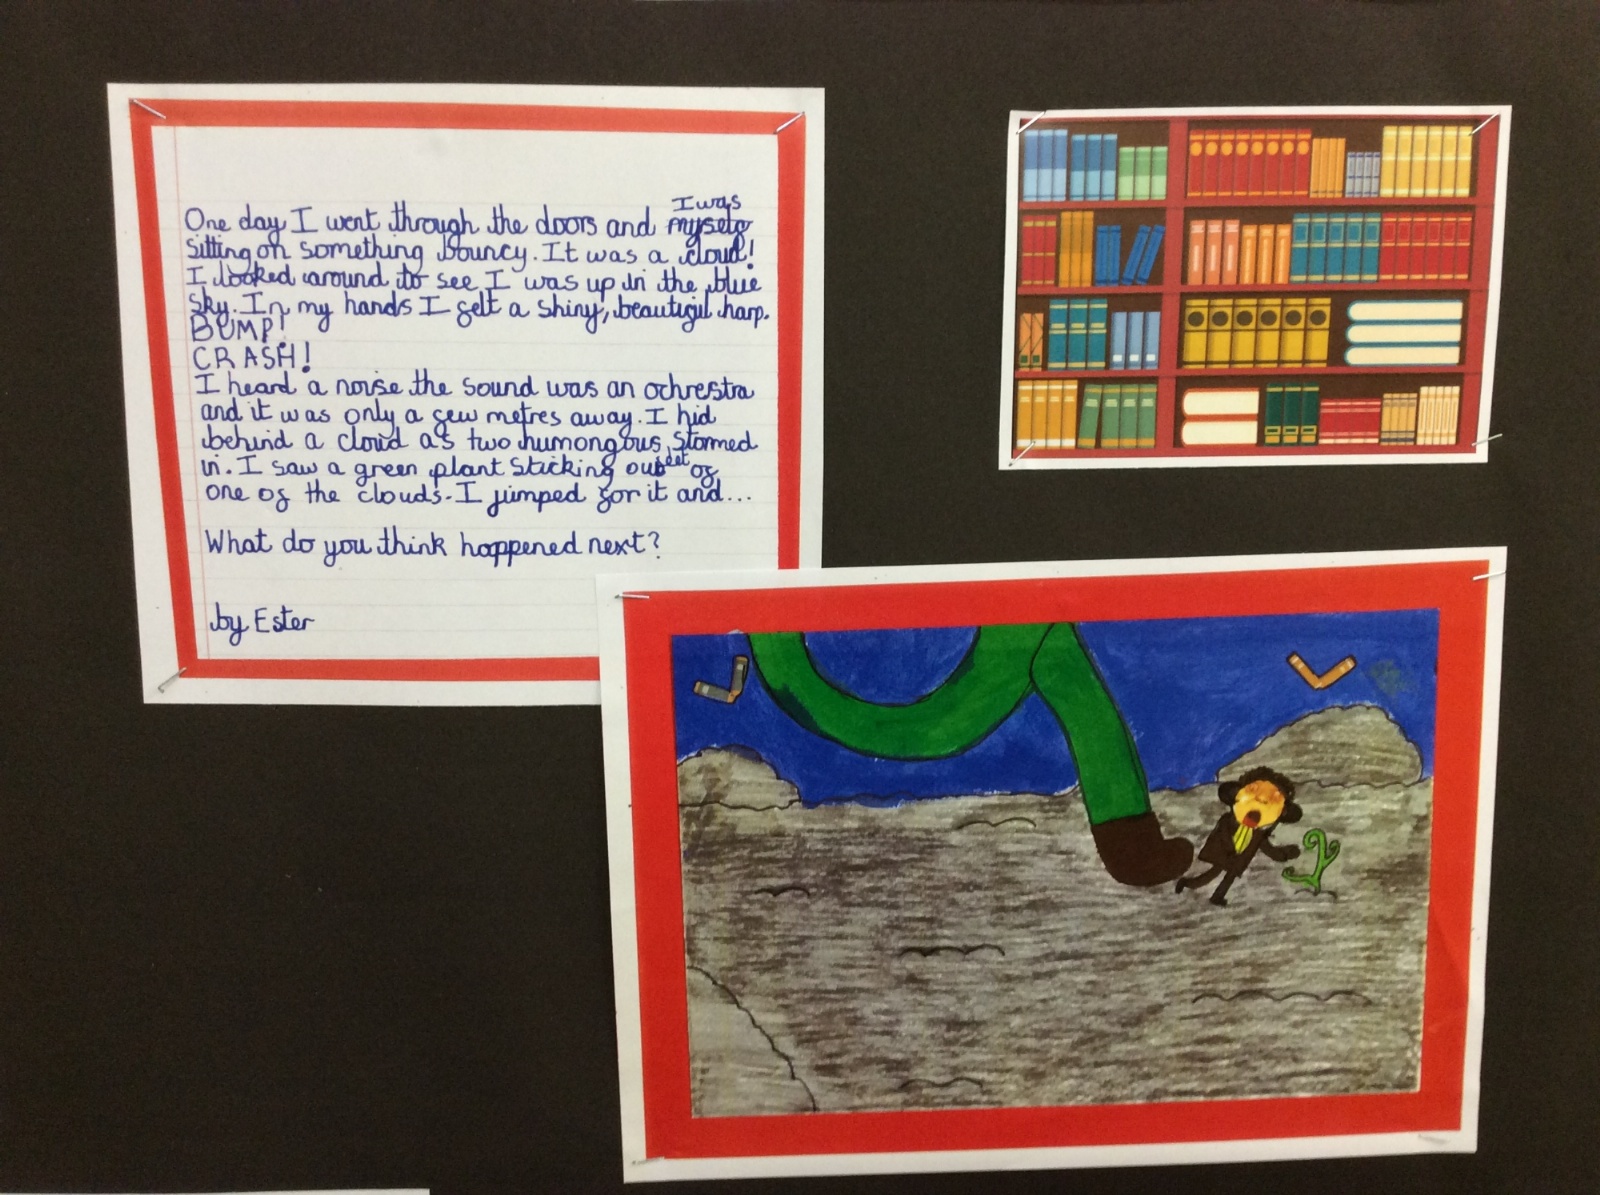 One day I went through the doors and I was
sitting on something bouncy. It was a cloud!
I looked around to see I was up in the blue
sky. In my hands I felt a shiny, beautiful harp.
BUMP!
CRASH!
I heard a noise the sound was an ochrestra
and it was only a few metres away. I hid
behind a cloud as two humongous stomed
in. I saw a green plant sticking out of
one of the clouds. I jumped for it and...
What do you think happened next?
by Ester